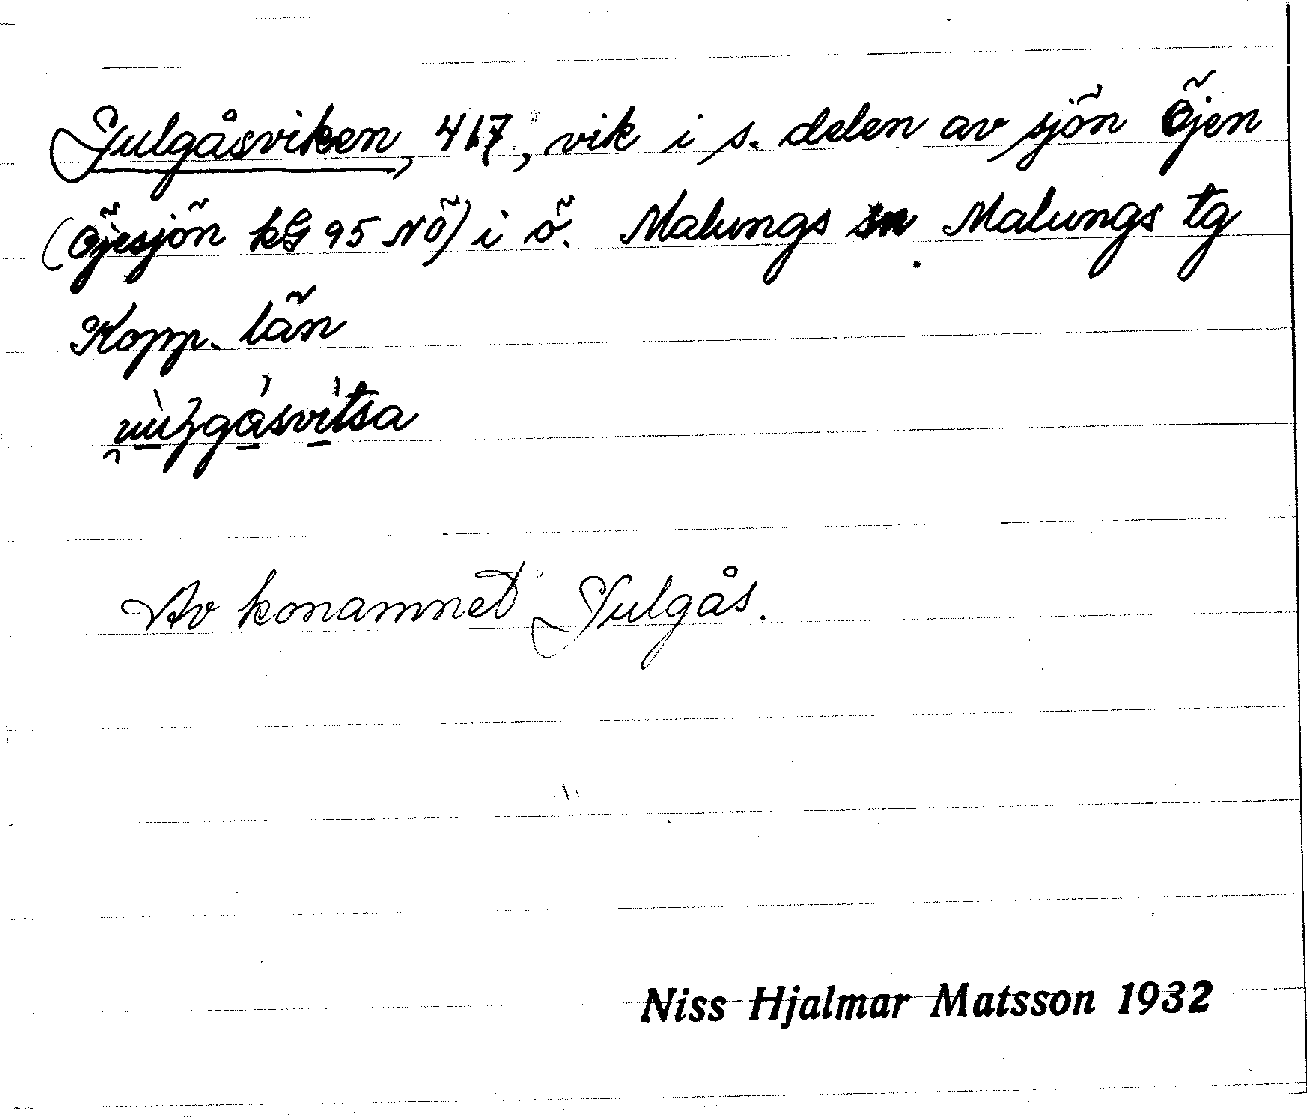 Julgåsviken, 417, vik i s. delen av sjön Öjen
(Öjesjön kG 95 NÖ) i ö. Malungs sn Malungs tg
Kopp. län
Av konamnet Julgås.
Niss Hjalmar Matsson 1932